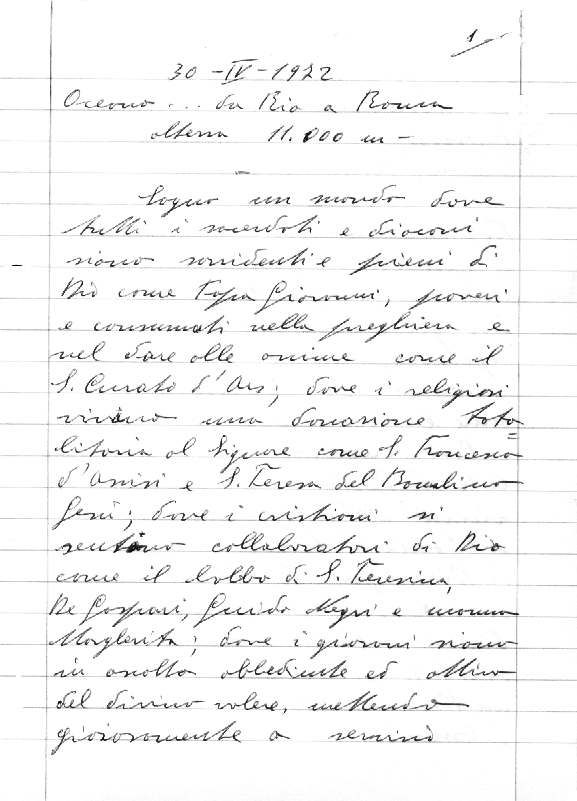 1
30-IV-1922
Oceano... da Rio a Roma
altezza 11.000 m-
Sogno un mondo dove
tutti i sacerdoti e diaconi
siano sorridenti e pieni di
Dio come Papa Giovanni, poveri
e consumati nella preghiera e
nel dare alle anime come il
S. Curato d'Ars; dove i religiosi
vivano una donazione tota=
litaria al Signore come S. Francesco
d'Assisi e S. Teresa del Bambino
Gesù; dove i cristiani si
sentano collaboratori di Dio
come il babbo di S. Teresina,
De Gasperi, Guido Negri e mamma
Margherita; dove i giovani siano
in ascolto obbediente ed attivo
del divino volere, mettendo
gioiosamente a servizio